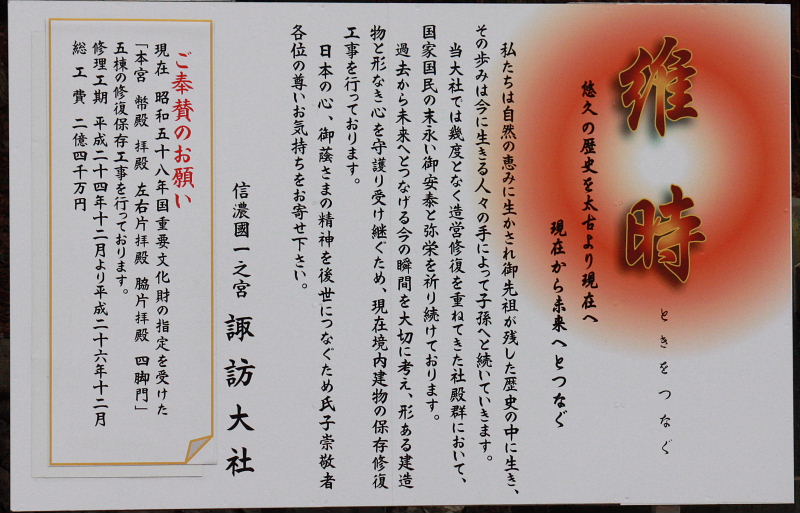 維時
ときをつなぐ
悠久の歴史を太古より現在へ
現在から未来へとつなぐ
私たちは自然の恵みに生かされ御先祖が残した歴史の中に生き、
その歩みは今に生きる人々の手によって子孫へと続いていきます。
当大社では幾度となく造営修復を重ねてきた社殿群において、
国家国民の末永い御安泰と弥栄を祈り続けております。
過去から未来へとつなげる今の瞬間を大切に考え、形ある建造
物と形なき心を守護り受け継ぐため、現在境内建物の保存修復
工事を行っております。
日本の心、御蔭さまの精神を後世につなぐため氏子崇敬者
各位の尊いお気持ちをお寄せ下さい。
信濃國一之宮 諏訪大社
ご奉賛のお願い
現在 昭和五十八年国重要文化財の指定を受けた
「本宮 幣殿 拝殿 左右片拝殿 脇片拝殿 四脚門」
五棟の修復保存工事を行っております。
修理工期 平成二十四年十二月より平成二十六年十二月
総工費 二億四千万円